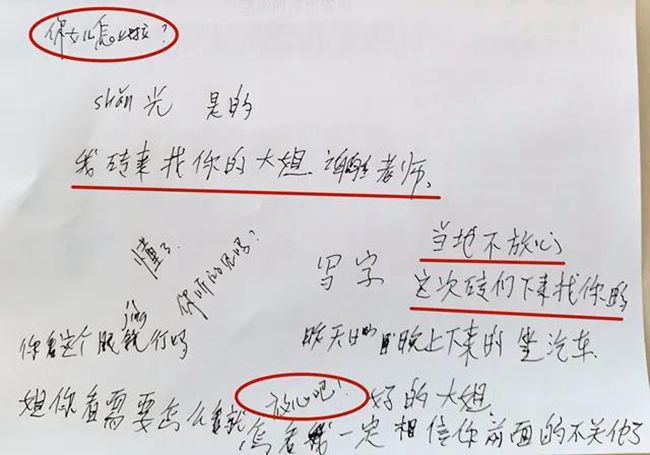 你女儿怎么啦？
shǎn光 是的
我砖来找你的大姐.谢谢老师、
懂了.
你听的见吗？
写字
当地不放心
这次砖们下来找你的
jìng
你看这个眼镜行吗
昨天的晚上下来的 坐汽车.
放心吧！
姐你看需要怎么看就
好的大姐
怎看我一定相信你前面的不关他了